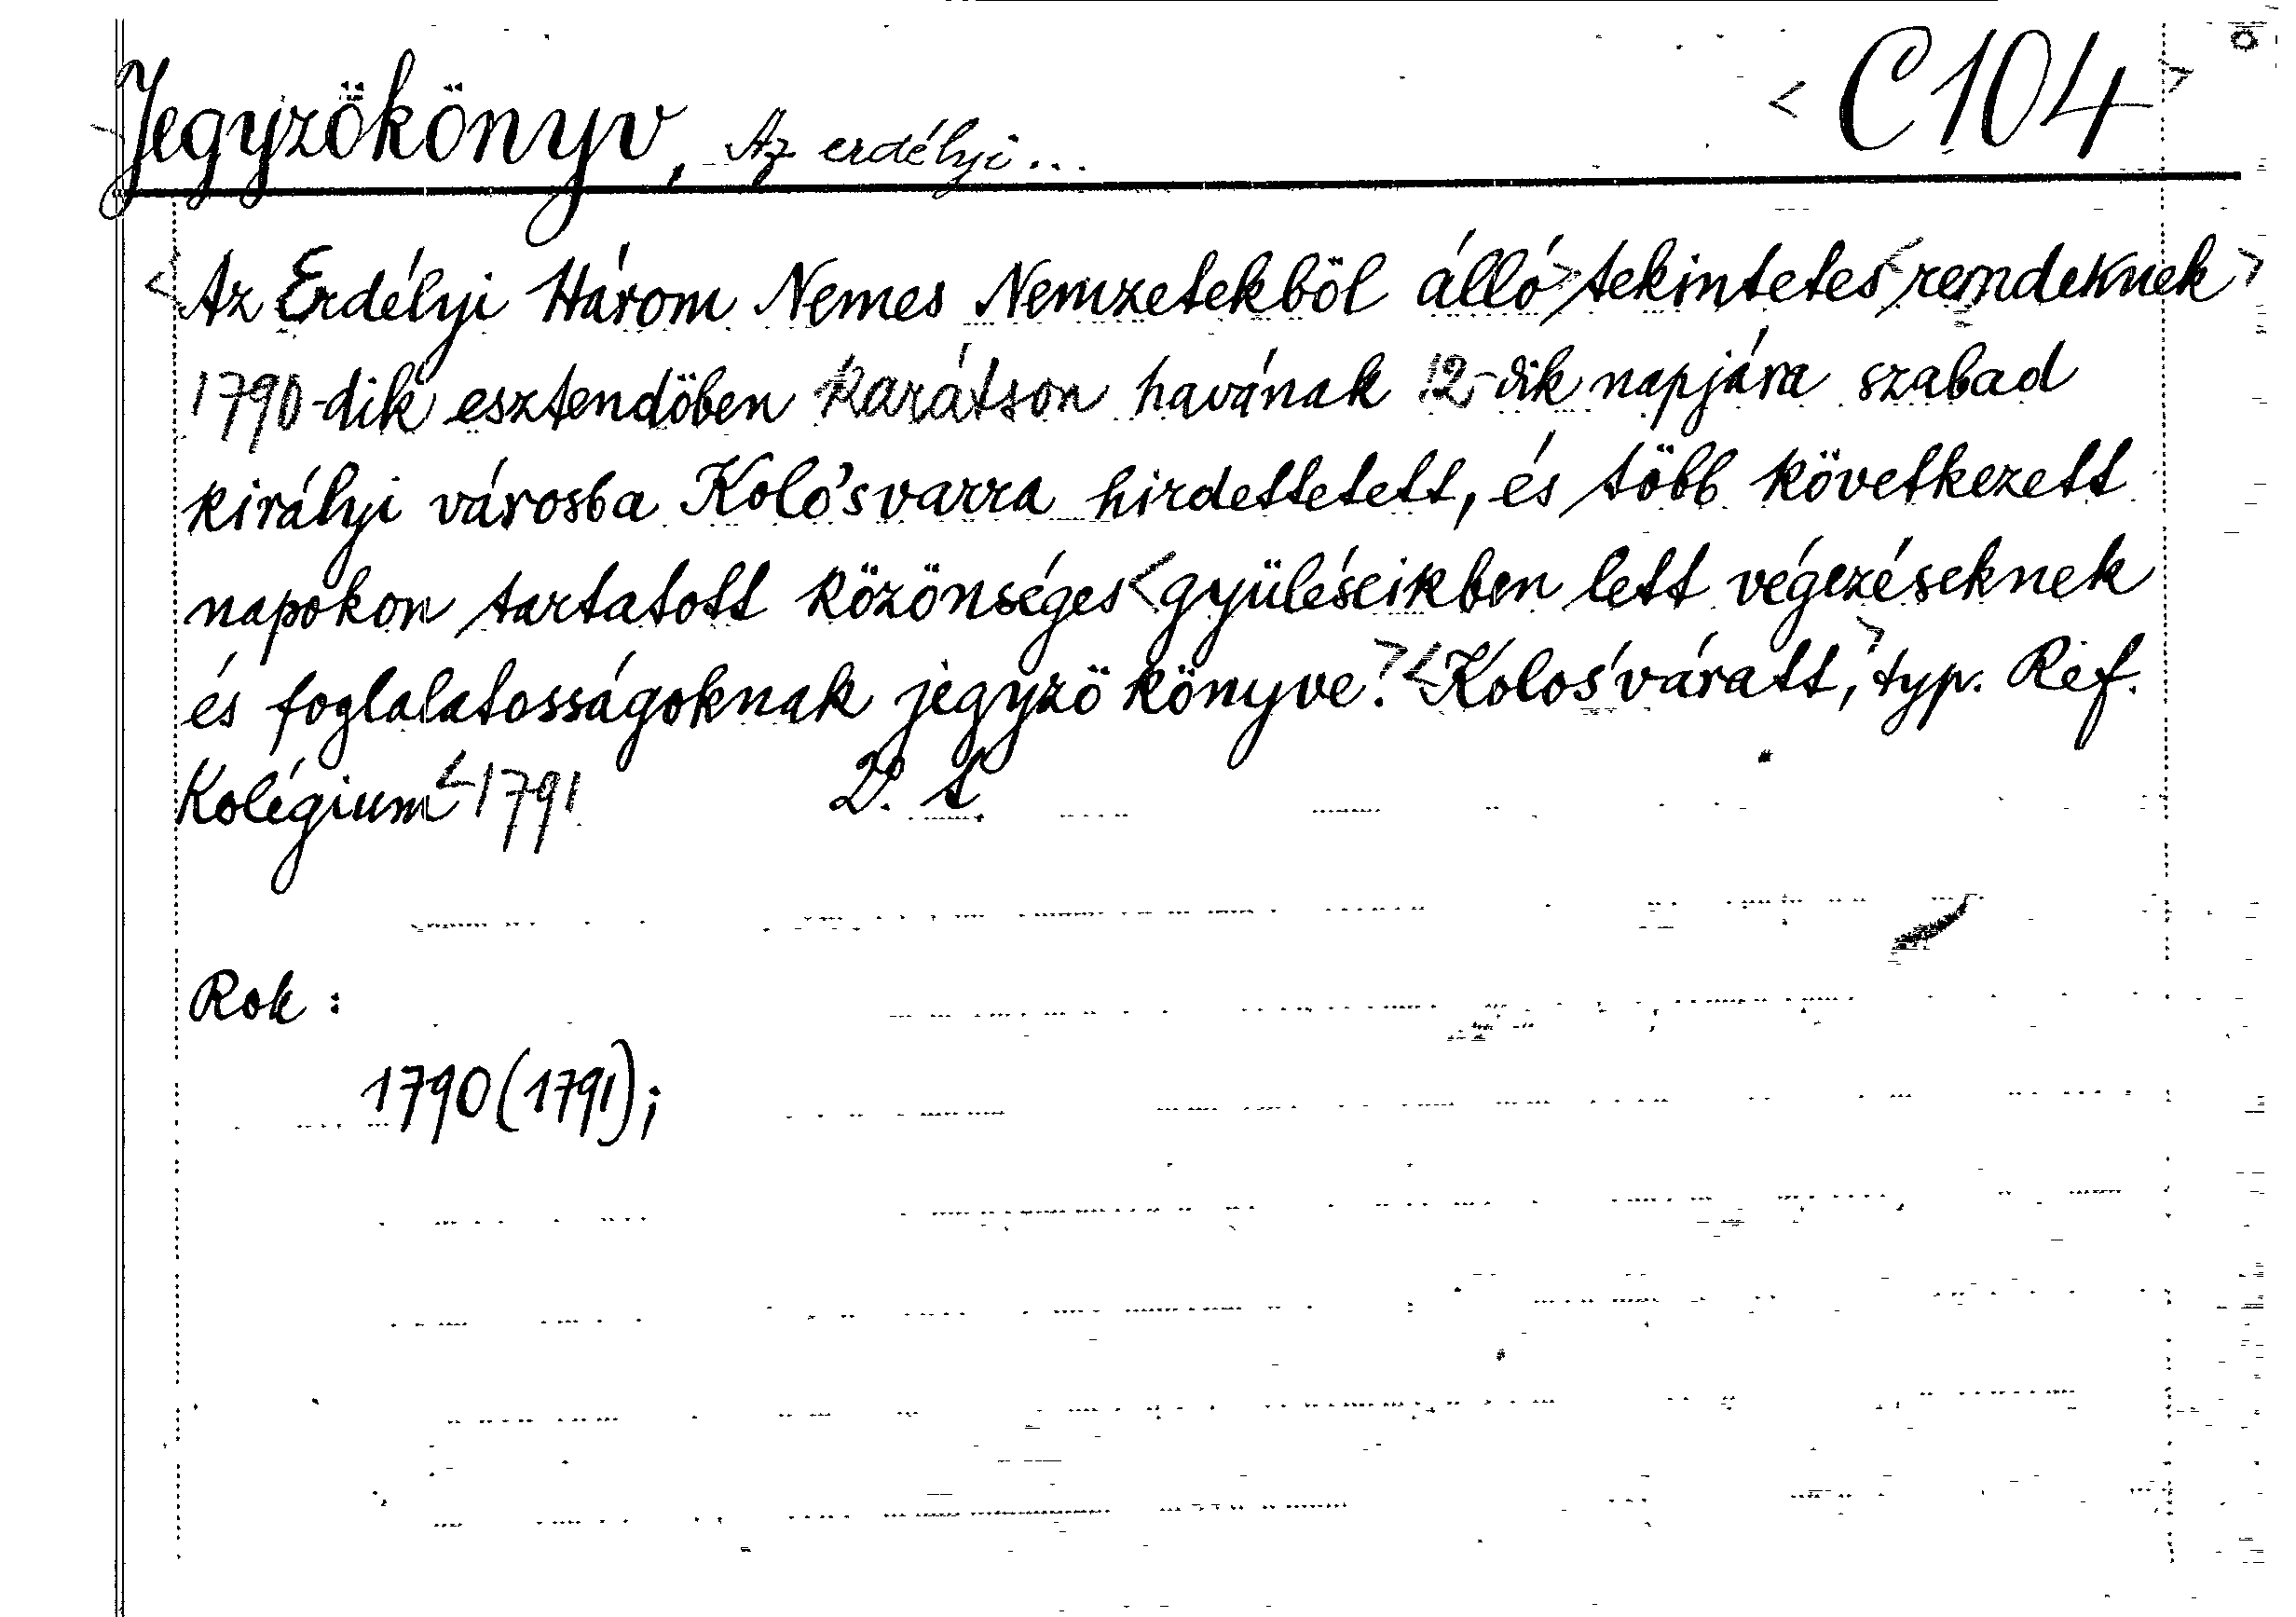 Jegyzőkönyv, Az erdélyi... <C104>
<Az Erdélyi Három Nemes Nemzetekböl álló> tekintetes <rendeknek>
1790-dik esztendöben Karátson havának 12-dik napjára szabad
királyi városba Kolo'svarra hirdettetett, és több következett
napokon tartatott közönséges <gyüléseikben lett végezéseknek
és foglalatosságoknak jegyzö könyve.> <Kolos'váratt,> typ. Ref.
Kolégium <1791 2°. t.
Rok:
1790(1791);